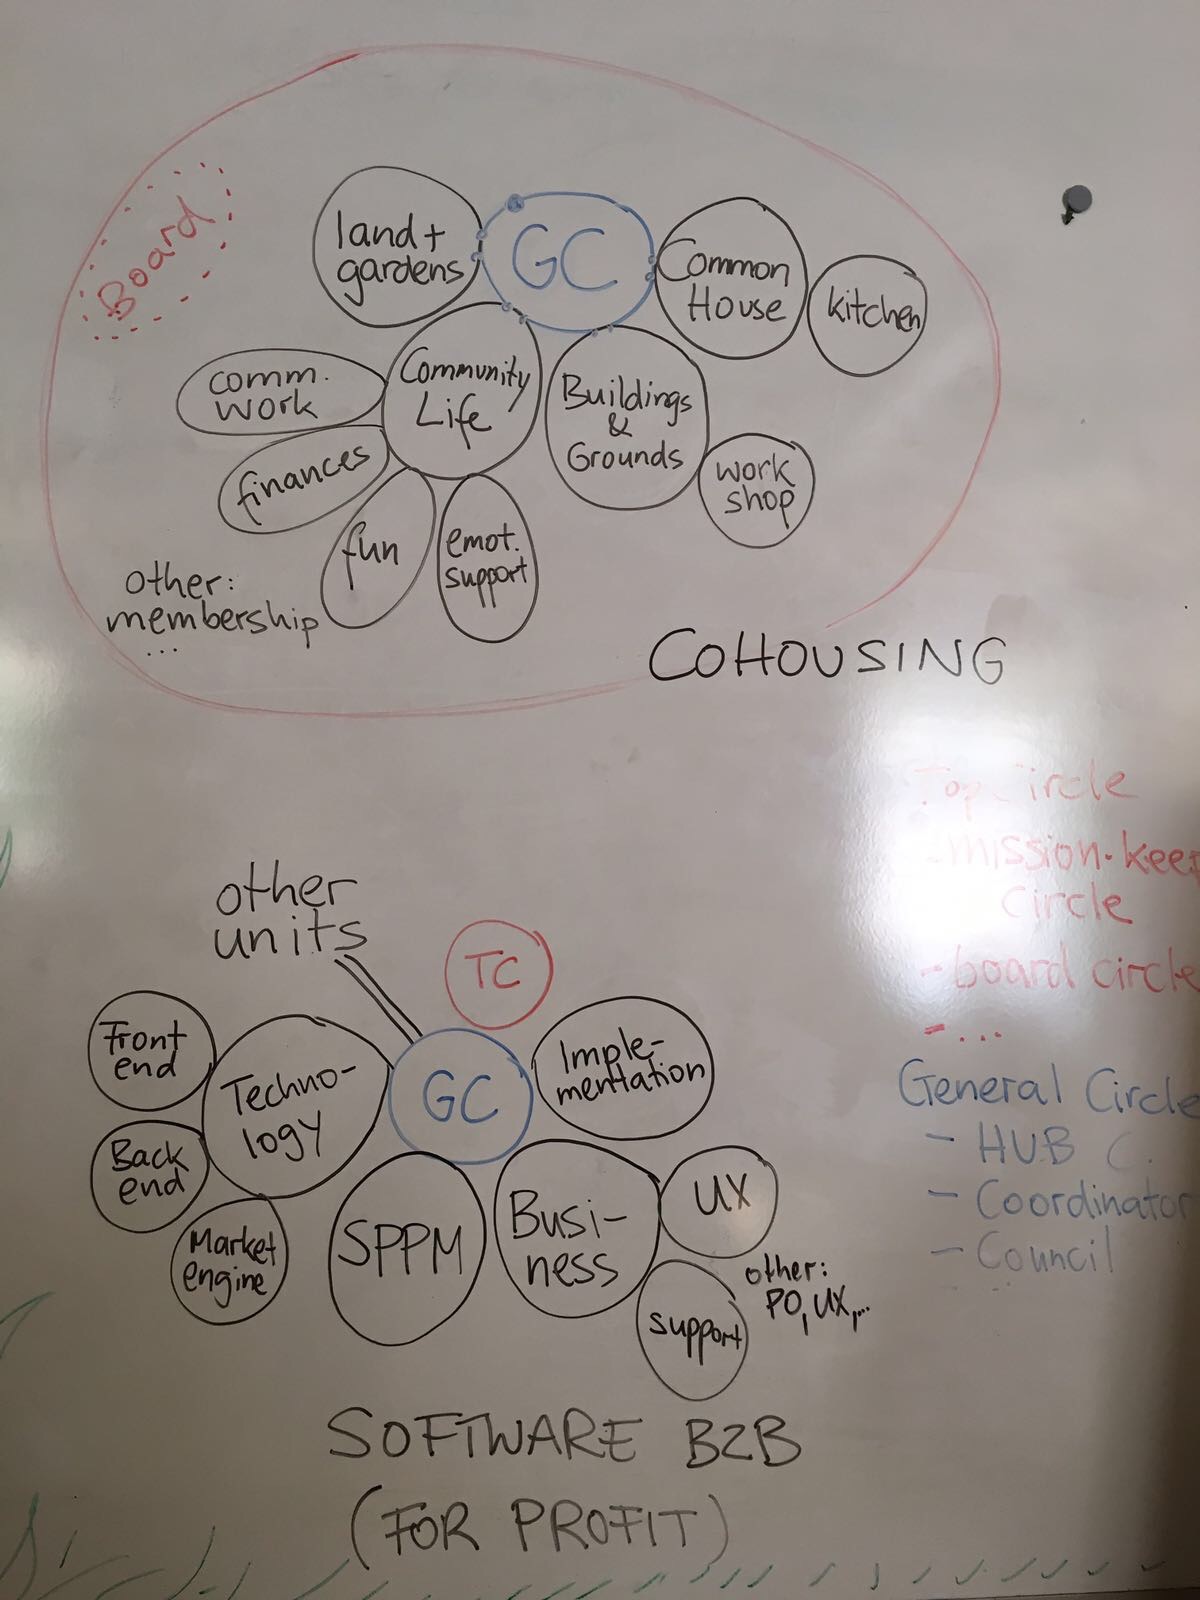 Board
land +
gardens
GC
Common
House
kitchen
comm.
work
Community
Life
Buildings
&
Grounds
finances
work
shop
fun
emot.
support
other:
membership
...
COHOUSING
Top Circle
mission-keep
Circle
- board circle
- ...
General Circle
- HUB C.
- Coordinator
- Council
other
units
TC
Front
end
Techno-
logy
GC
Imple-
mentation
Back
end
Market
engine
SPPM
Busi-
ness
UX
support
other:
PO, UX,...
SOFTWARE B2B
(FOR PROFIT)